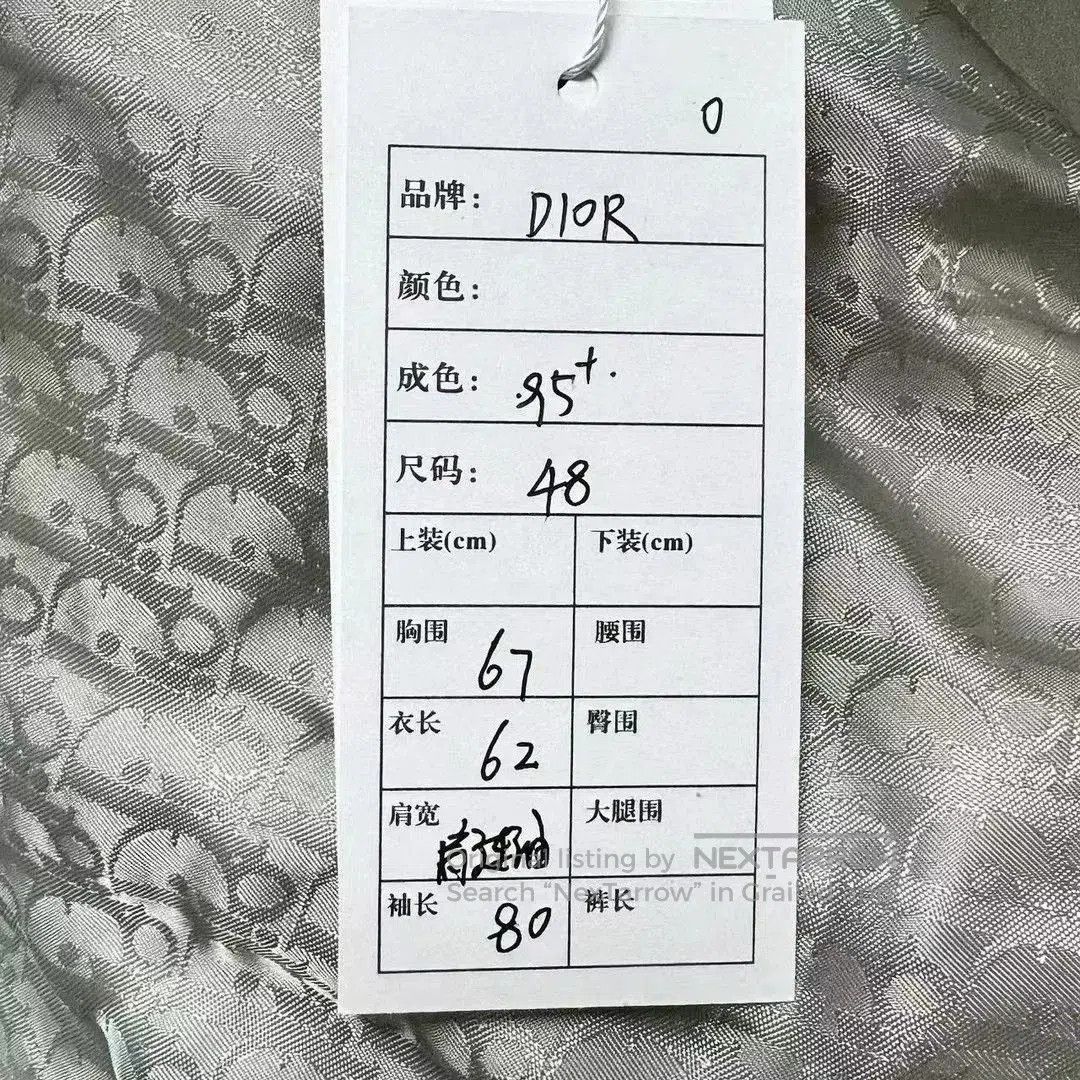 0
品牌: DIOR
颜色:
成色: 95+
尺码: 48
上装(cm) 下装(cm)
胸围 67 腰围
衣长 62 臀围
肩宽 肩连袖 大腿围
Original listing by NEXTARROW
Search "NexTarrow" in Grailed
袖长 80 裤长